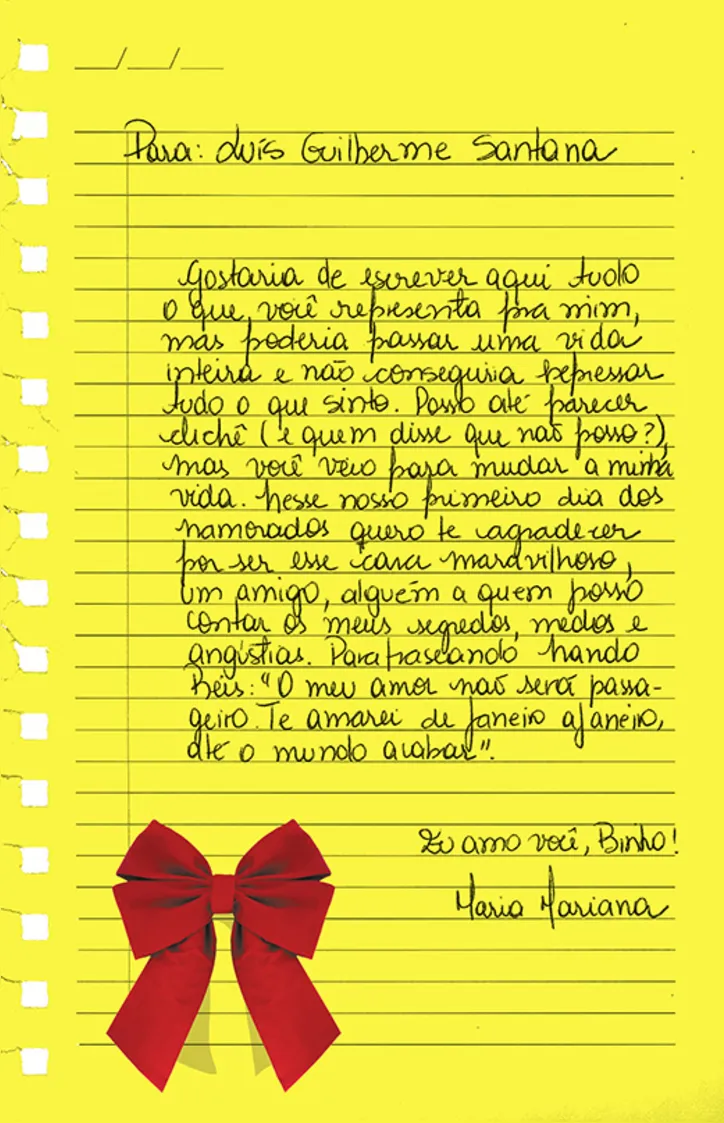 __/__/__
Para: Luís Guilherme Santana
Gostaria de escrever aqui tudo
o que você representa pra mim,
mas poderia passar uma vida
inteira e não conseguiria
tudo o que sinto. Posso até parecer
clichê (e quem disse que não posso?),
mas você veio para mudar a minha
vida. Nesse nosso primeiro dia dos
namorados quero te agradecer
por ser esse cara maravilhoso,
um amigo, alguém a quem posso
contar os meus segredos, medos e
angústias. Parafraseando Nando
Reis: "O meu amor não será passa-
geiro. Te amarei de Janeiro a Janeiro,
até o mundo acabar".
Eu amo você, Binho!
Maria Mariana